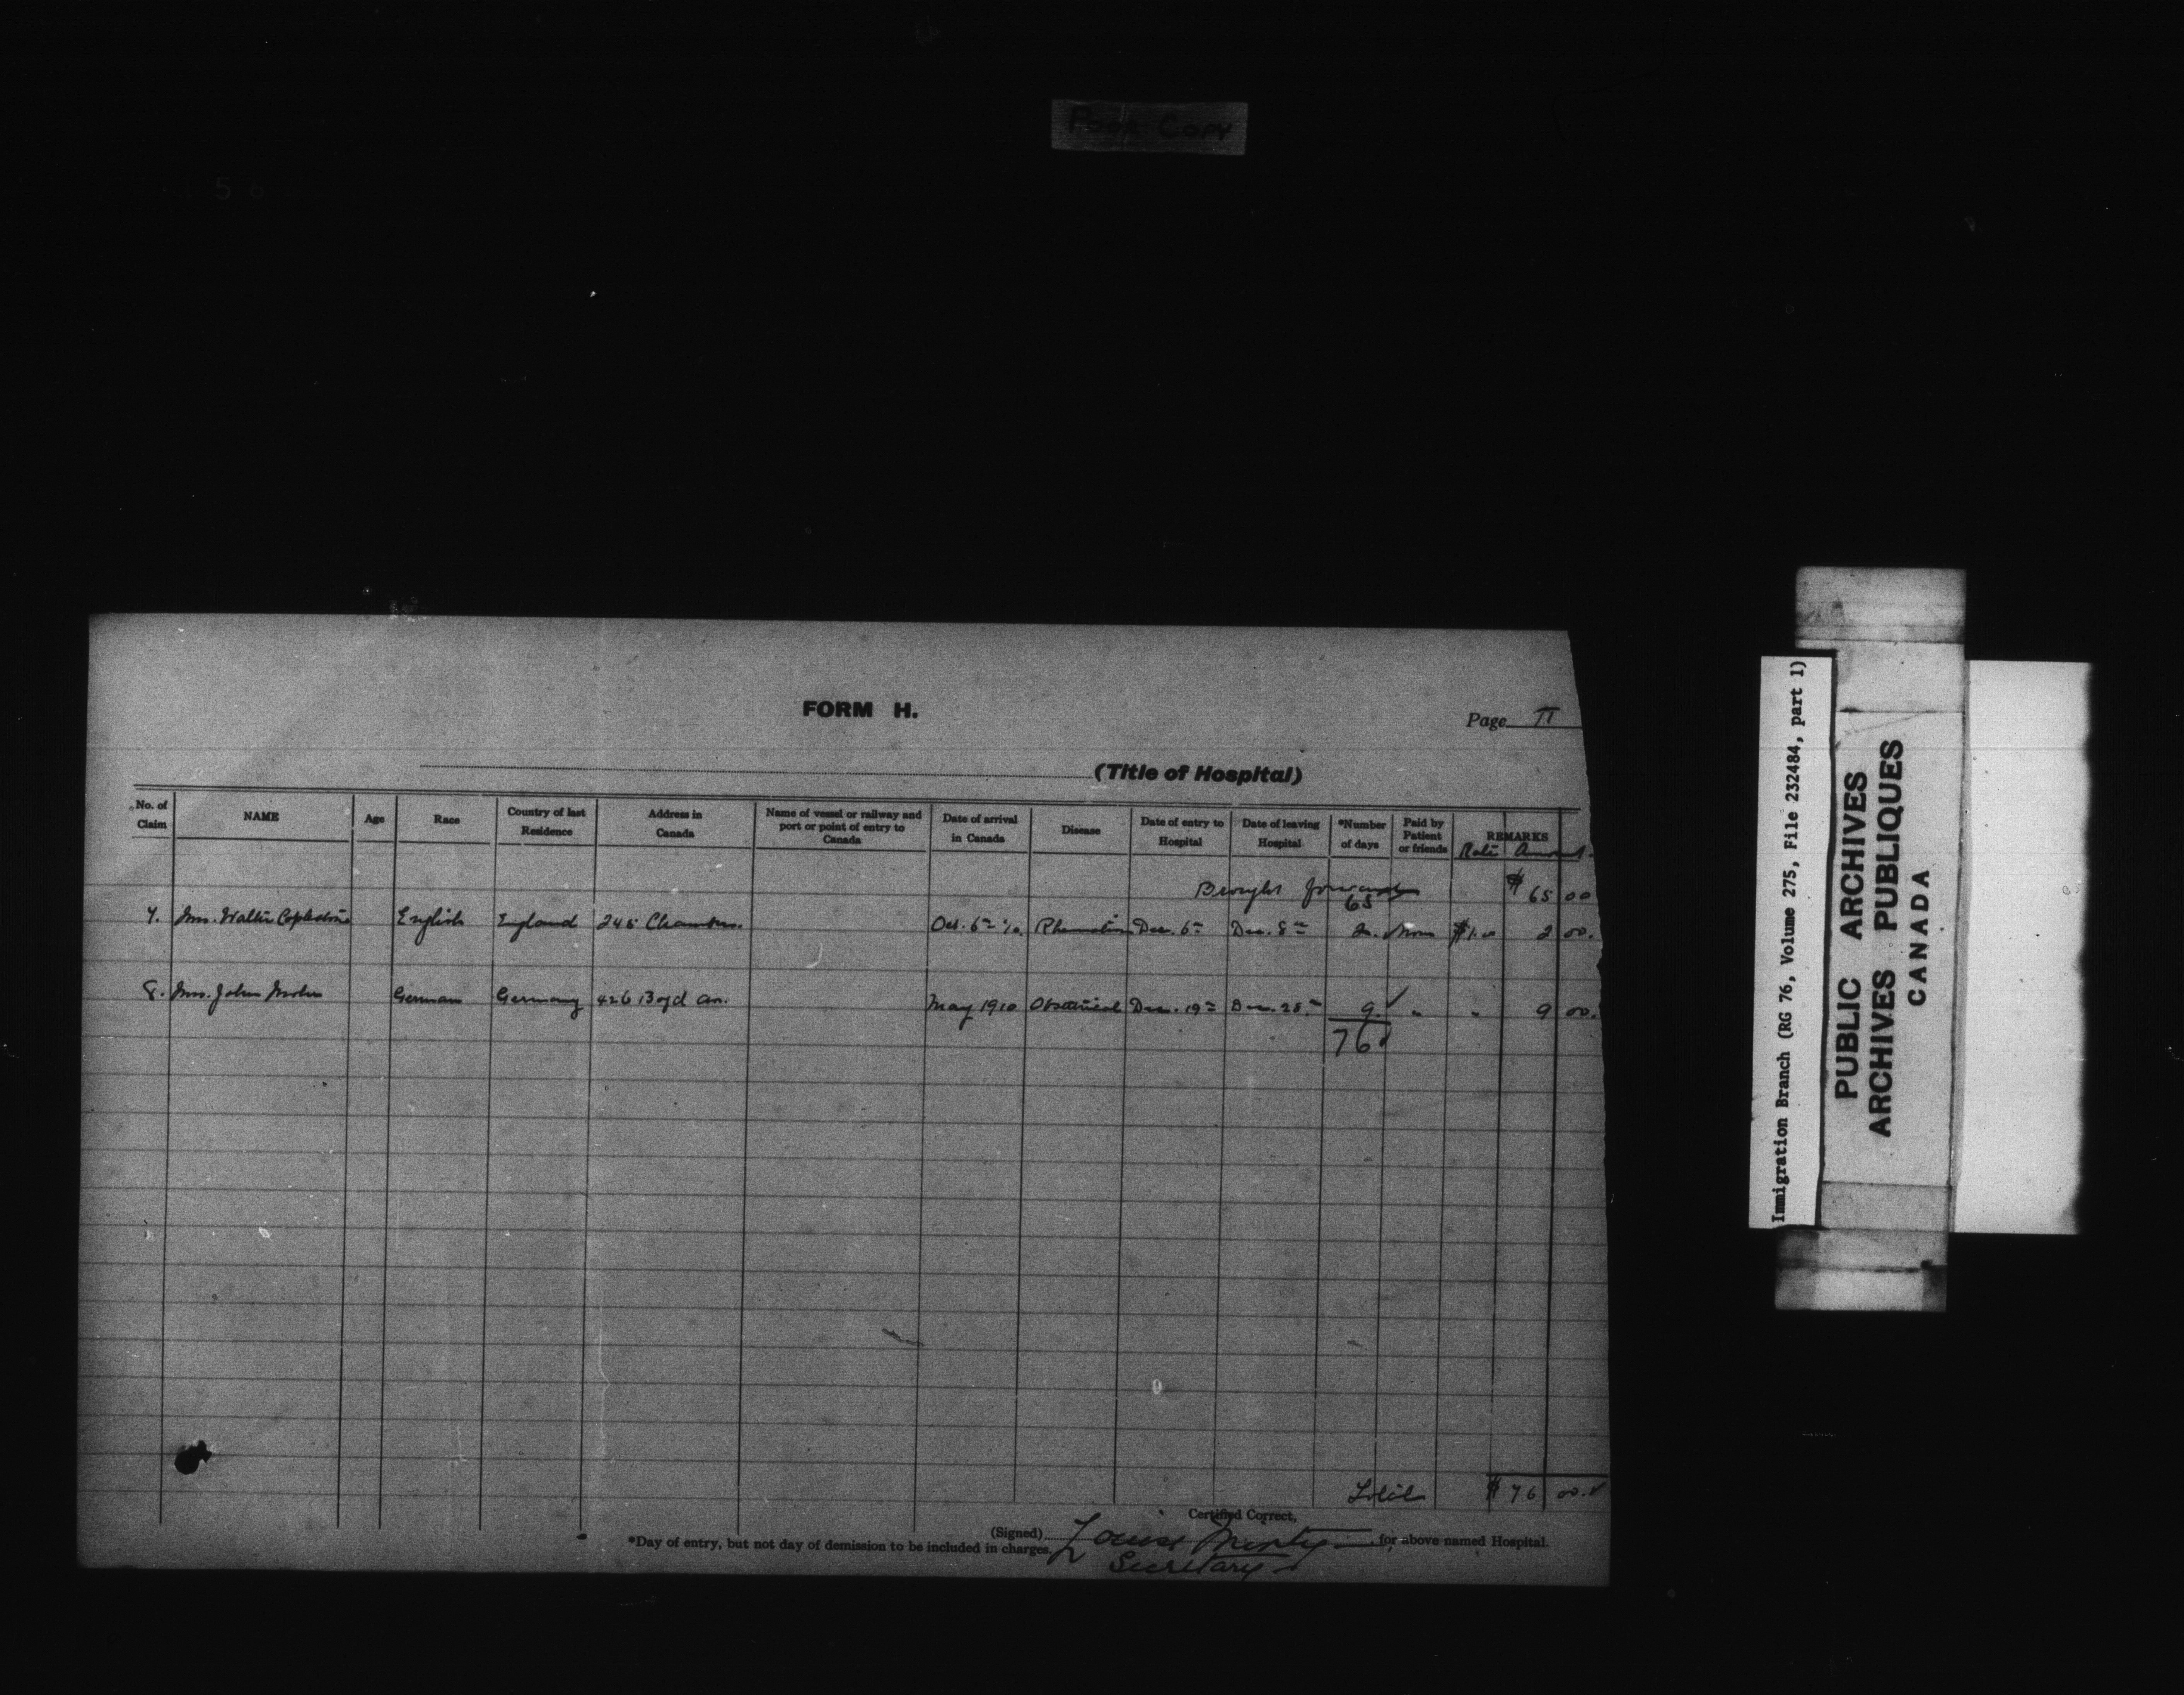 Poor Copy
FORM H.
Page II
(Title of Hospital)
No. of Claim NAME Age Race Country of last Residence Address in Canada Name of vessel or railway and port or point of entry to Canada Date of arrival in Canada Disease Date of entry to Hospital Date of leaving Hospital *Number of days Paid by Patient or friends REMARKS
Rate Amount.
Brought forward $ 65 00
65
7. Mrs. Walter Coplestone English England 245 Chambers. Oct. 6th '10. Rheumatism Dec. 6th Dec. 8th 2. None $1.00 2 00.
8. Mrs. John German Germany 426 Boyd av. May 1910 Obstetrical Dec. 19th Dec. 28th 9 " " 9 00.
76
Total $ 76 00.
Certified Correct,
(Signed) Louise for above named Hospital.
*Day of entry, but not day of demission to be included in charges.
Secretary
Immigration Branch (RG 76, Volume 275, File 232484, part 1)
PUBLIC ARCHIVES
ARCHIVES PUBLIQUES
CANADA